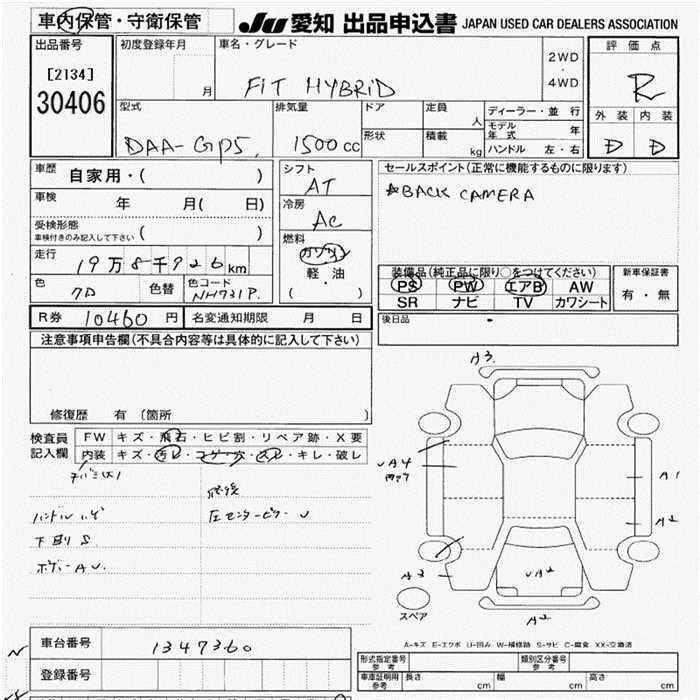 車内保管・守衛保管
JU 愛知 出品申込書 JAPAN USED CAR DEALERS ASSOCIATION
出品番号 初度登録年月 車名・グレード 評価点
[2134]
30406
月
FIT HYBRID
2WD
・
4WD
R
外装 内装
D D
型式 排気量 ドア 定員 ディーラー・並行
人 モデル年式 年
DAA-GP5, 1500cc 形状 積載 kg ハンドル 左・右
車歴 自家用・( )
シフト AT
セールスポイント(正常に機能するものに限ります)
☆BACK CAMERA
車検 年 月( 日)
冷房 AC
受検形態
車検付きのみ記入して下さい ( )
燃料
ガソリン
軽・油
( )
走行 19万8千926km
装備品(純正品に限り○をつけてください) 新車保証書
色 色替 色コード
NH731P.
PS PW エアB AW
SR ナビ TV カワシート
有・無
R券 10460 円 名変通知期限 月 日
後日品
注意事項申告欄(不具合内容等は具体的に記入して下さい)
修復歴 有 〔箇所 〕
検査員
記入欄
FW キズ・飛石・ヒビ割・リペア跡・X要
内装 キズ・汚レ・コゲ・穴・スレ・キレ・破レ
ハンドルハゲ
下廻りS
A3
A1
A2
A3
A2
A2
スペア
A-キズ E-エクボ U-凹み W-補修跡 S-サビ C-腐食 XX-交換済
車台番号 1347360
登録番号
形式指定番号 参考 類別区分番号 参考
車庫証明用 参考 長さ cm 幅 cm 高さ cm